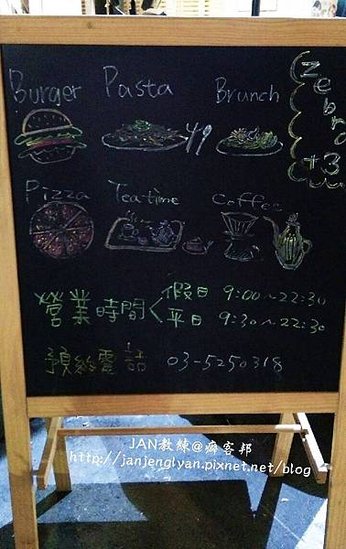 Burger Pasta Brunch
Zebra
+3
Pizza Tea-time Coffee
營業時間<假日 9:00~22:30
平日 9:30~22:30
預約電話 03-5250318
JAN教練@痞客邦
http://janjenglyan.pixnet.net/blog